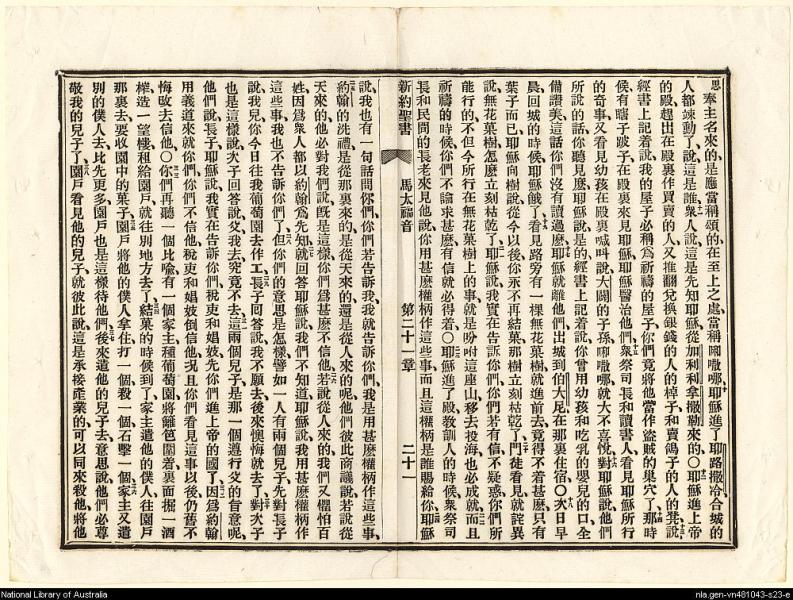 思
奉主名來的是應當稱頌的在至上之處當稱㗢㘓哪耶穌進了耶路撒冷合城的
人都竦動了說這是誰衆人說這是先知耶穌從加利利拿撒勒來的○耶穌進上帝
的殿趕出在殿裏作買賣的人又推翻兌換銀錢的人的棹子和賣鴿子的人的凳說
經書上記着說我的屋子必稱爲祈禱的屋子你們竟將他當作盜賊的巢穴了那時
候有瞎子跛子在殿裏來見耶穌耶穌醫治他們衆祭司長和讀書人看見耶穌所行
的奇事又看見幼孩在殿裏喊叫說大闢的子孫㗢㘓哪就大不喜悅對耶穌說他們
所說的話你聽見麽耶穌說是的經書上記着說你曾用幼孩和吃乳的嬰兒的口全
備讚美這話你們沒有讀過麽耶穌就離他們出城到伯大尼在那裏住宿○次日早
晨回城的時候耶穌餓了看見路旁有一棵無花菓樹就進前去竟得不着甚麽只有
葉子而已耶穌向樹說從今以後你永不再結菓那樹立刻枯乾了門徒看見就詫異
說無花菓樹怎麽立刻枯乾了耶穌說我實在告訴你們你們若有信不疑惑你們所
能行的不但今所行在無花菓樹上的事就是吩咐這座山移去投海也必成就而且
祈禱的時候你們不論求甚麽有信就必得着○耶穌進了殿教訓人的時候衆祭司
長和民間的長老來見他說你用甚麽權柄作這些事而且這權柄是誰賜給你耶穌
新約聖書 馬太福音 第二十一章 二十一
說我也有一句話問你們你們若告訴我我就告訴你們我是用甚麽權柄作這些事
約翰的洗禮是從那裏來的是從天來的還是從人來的呢他們彼此商議說若說從
天來的他必對我們說旣是這樣你們爲甚麽不信他若說從人來的我們又懼怕百
姓因爲衆人都以約翰爲先知就回答耶穌說我們不知道耶穌說我用甚麽權柄作
這些事我也不告訴你們了但你們的意思是怎樣譬如一人有兩個兒子先對長子
說我兒你今日往我葡萄園去作工長子回答說我不願去後來懊悔就去了對次子
也是這樣說次子回答說父我去究竟不去這兩個兒子是那一個遵行父的旨意呢
他們說長子耶穌說我實在告訴你們稅吏和娼妓先你們進上帝的國了因爲約翰
用義道來就你們你們不信他稅吏和娼妓倒信他況且你們看見這事以後仍舊不
悔改去信他○你們再聽一個比喻有一個家主種葡萄園將籬笆圍着裏面掘一酒
榨造一望樓租給園戶就往別地方去了結菓的時候到了家主遣他的僕人往園戶
那裏去要收園中的菓子園戶將他的僕人拿住打一個殺一個石擊一個家主又遣
別的僕人去比先更多園戶也是這樣待他們後來遣他的兒子去意思說他們必尊
敬我的兒子了園戶看見他的兒子就彼此說這是承接產業的可以同來殺他將他
National Library of Australia
nla.gen-vn481043-s23-e